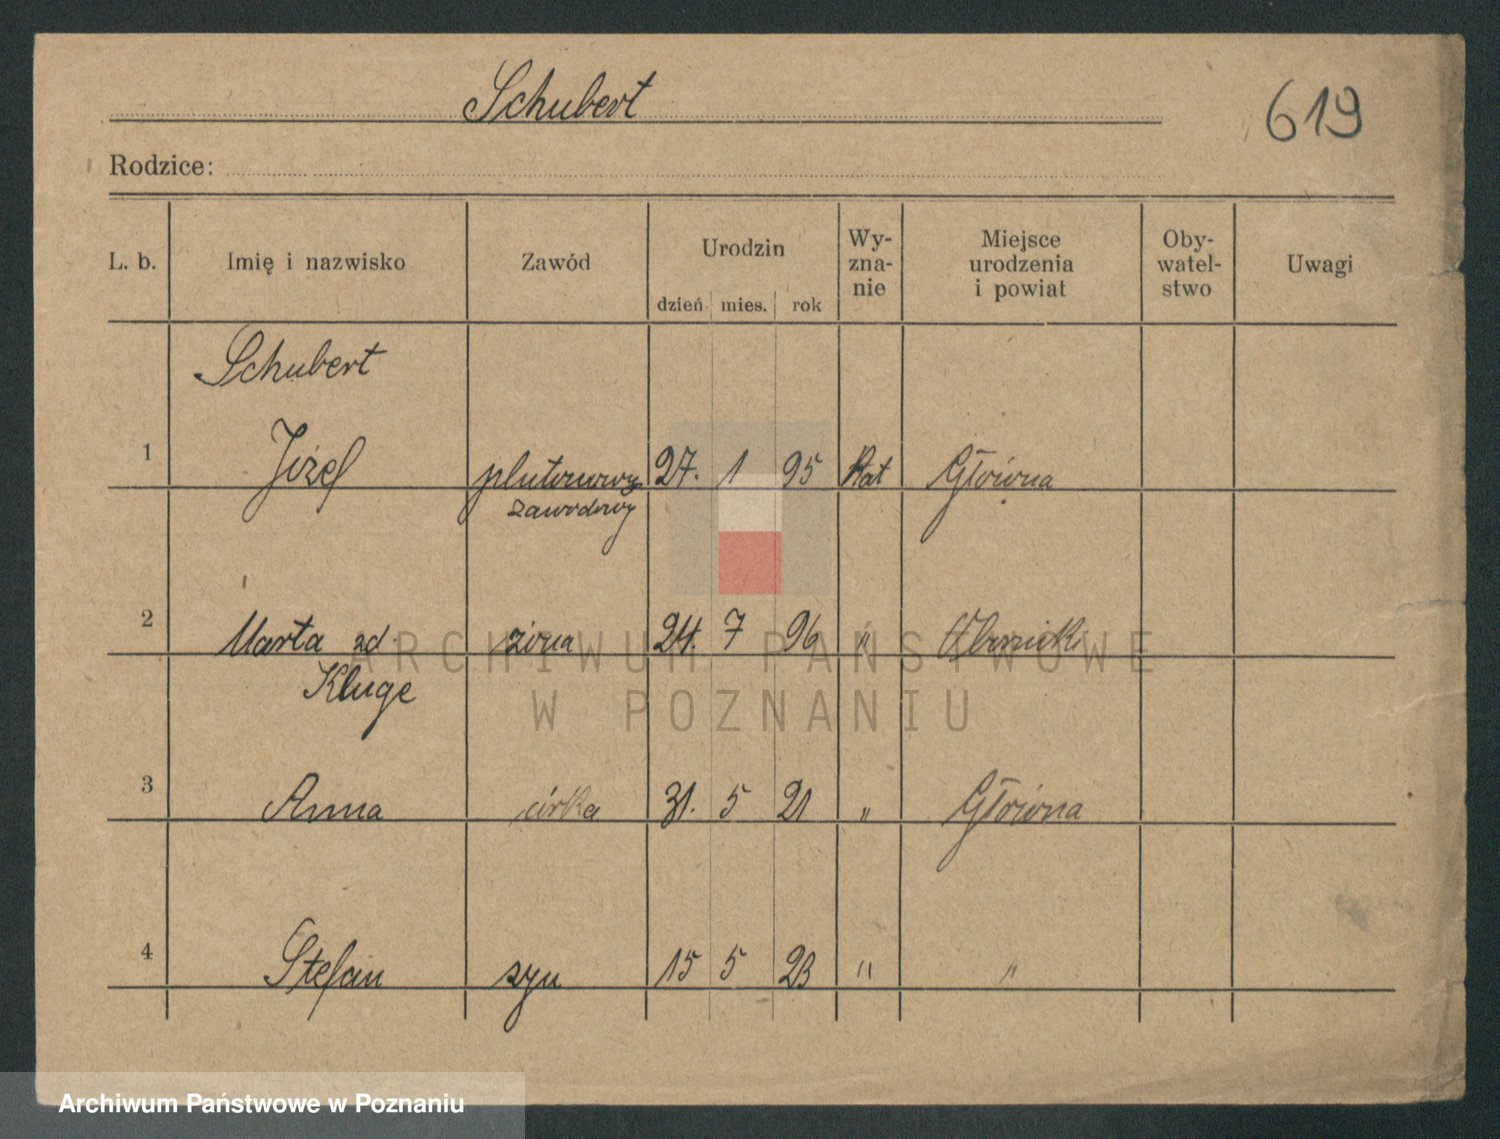 Schubert
619
Rodzice:
L. b. Imię i nazwisko Zawód Urodzin Wy- Miejsce Oby- Uwagi
zna- urodzenia watel-
nie i powiat stwo
dzień mies. rok
Schubert
1 Józef plutonowy 27. 1 95 Kat Główna
zawodowy
2 Marta zd. żona 24. 7 96 " Oborniki
Kluge
3 Anna córka 31. 5 21 " Główna
4 Stefan syn 15 5 23 " "
ARCHIWUM PAŃSTWOWE
W POZNANIU
Archiwum Państwowe w Poznaniu